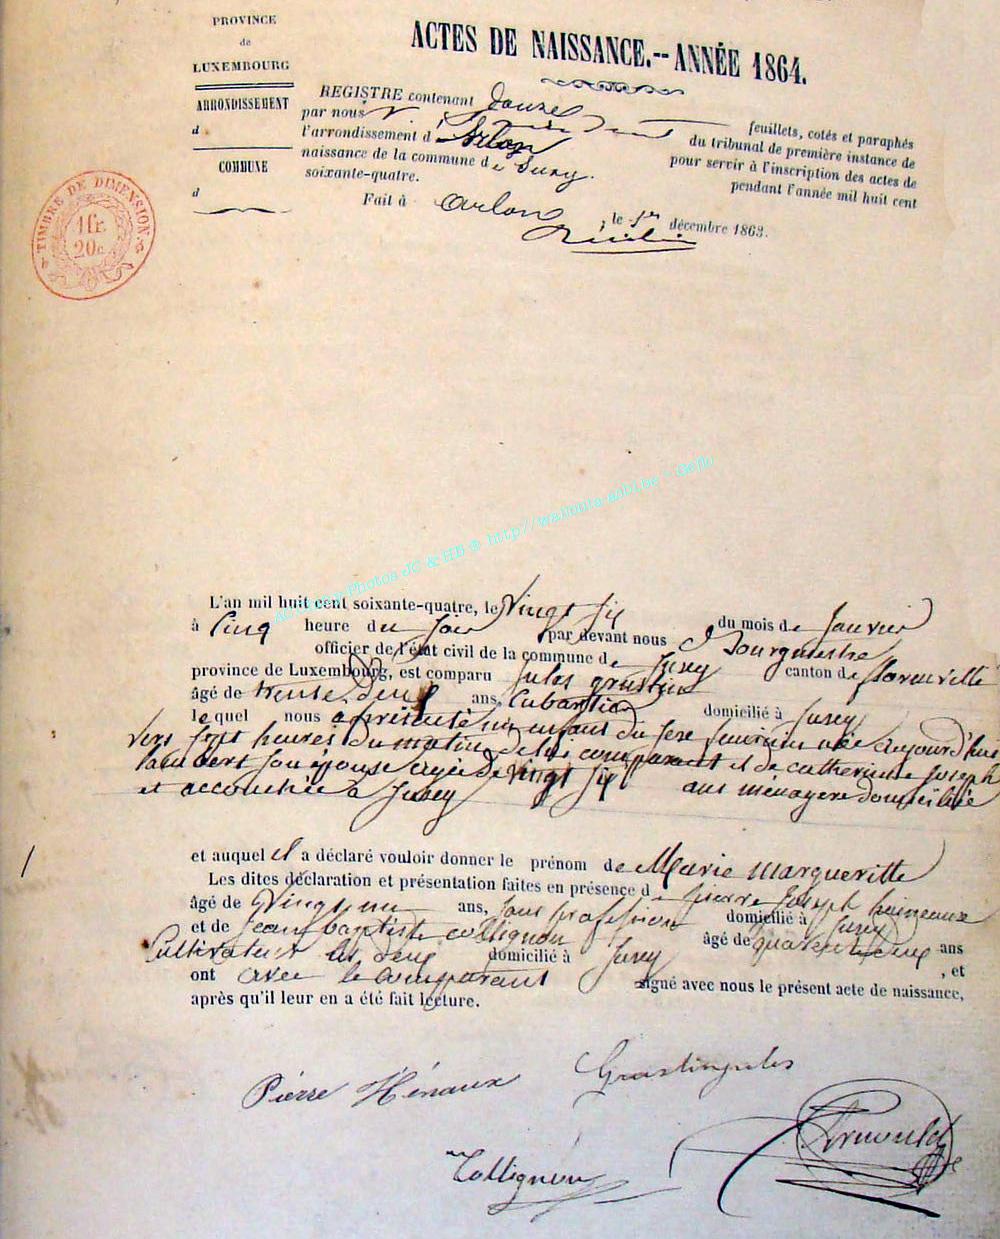 PROVINCE
de
LUXEMBOURG
ARRONDISSEMENT
d
COMMUNE
d
ACTES DE NAISSANCE.--ANNÉE 1864.
REGISTRE contenant douze feuillets, cotés et paraphés
par nous du tribunal de première instance de
l'arrondissement d'Arlon pour servir à l'inscription des actes de
naissance de la commune de Suxy. pendant l'année mil huit cent
soixante-quatre.
Fait à Arlon, le 1er décembre 1863.
TIMBRE DE DIMENSION
1 fr.
20c.
Photos JC & HB @ http://wallonia-asbl.be - Geflo
L'an mil huit cent soixante-quatre, le vingt six du mois de Janvier
à Cinq heure du soir par devant nous Bourgmestre
officier de l'état civil de la commune de Suxey canton de florenville
province de Luxembourg, est comparu Jules
âgé de trente deux ans, Cabaretier domicilié à Suxey
lequel nous a présenté un enfant du sexe féminin née aujourd'hui
vers sept heures du matin de lui comparant et de catherinne Joseph
son épouse agée de vingt six ans ménagère domiciliée
et accouchée à Suxey
et auquel il a déclaré vouloir donner le prénom de Marie margueritte
Les dites déclaration et présentation faites en présence de pierre Joseph
âgé de vingt un ans, sans profession domicilié à Suxey
et de Jean baptiste collignon âgé de quarente deux ans
Cultivateur les deux domicilié à Suxey, et
ont avec le comparant signé avec nous le présent acte de naissance,
après qu'il leur en a été fait lecture.
Pierre Hénaux
Collignon